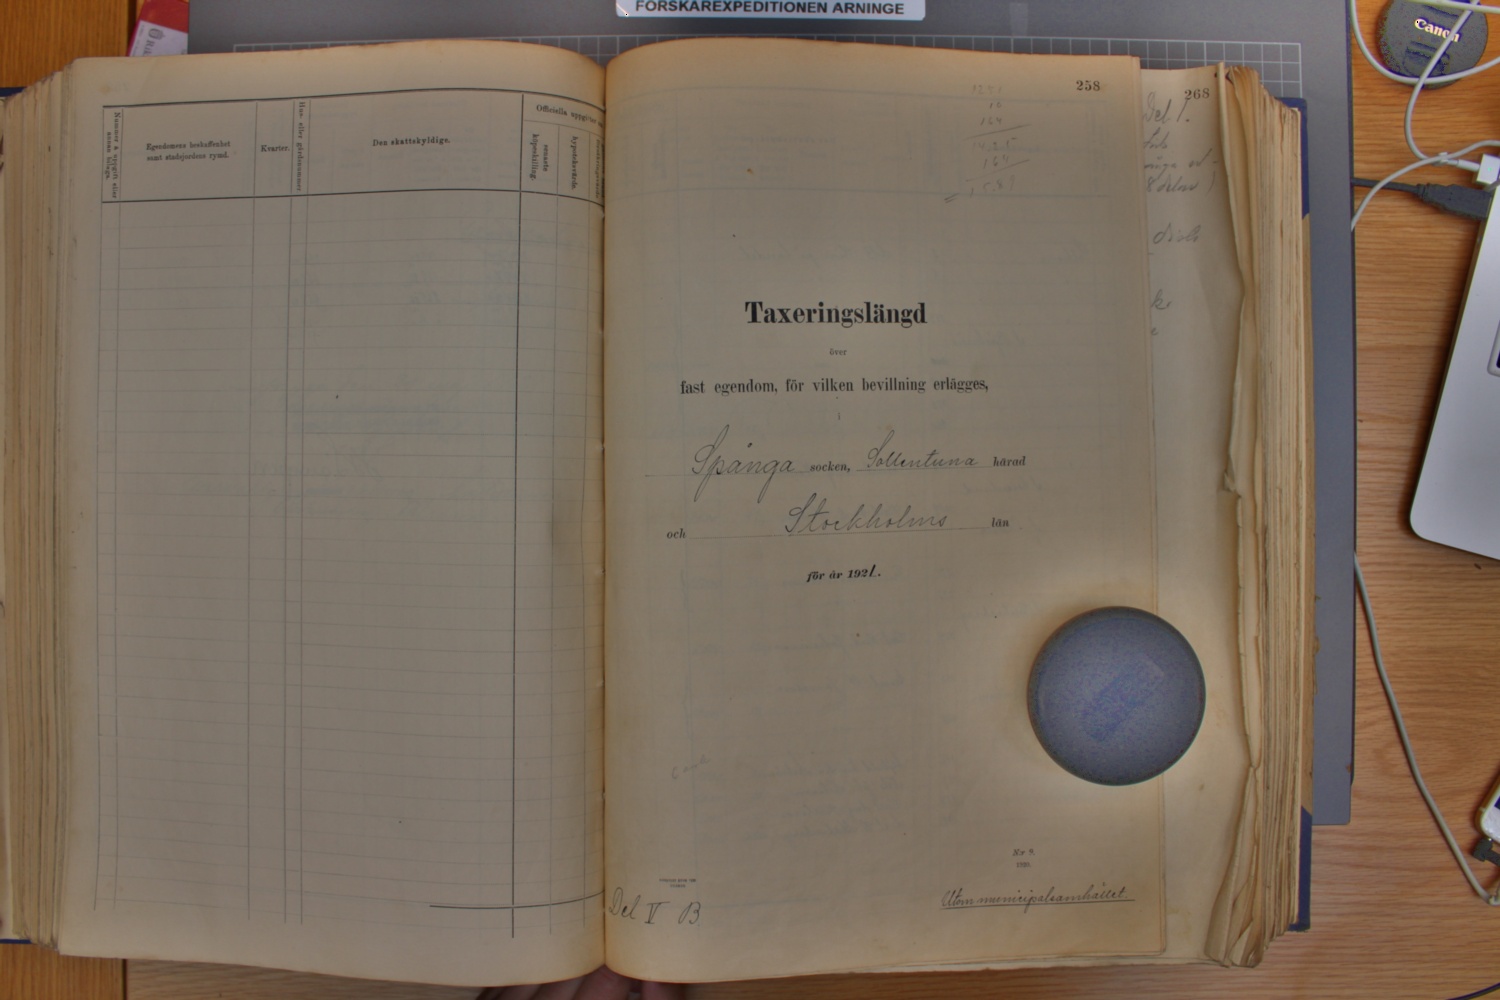 FORSKAREXPEDITIONEN ARNINGE
Canon
Nummer å uppgift eller annan bilaga.
Egendomens beskaffenhet samt stadsjordens rymd.
Kvarter.
Hus- eller gårdsnummer
Den skattskyldige.
Officiella uppgifter
senaste köpeskilling.
hypoteksvärde.
258
268
164
164
Del 1.
Taxeringslängd
över
fast egendom, för vilken bevillning erlägges,
i
Spånga socken, Sollentuna härad
och Stockholms län
för år 1921.
N:r 9.
1920.
Del V B
Utom municipalsamhället.